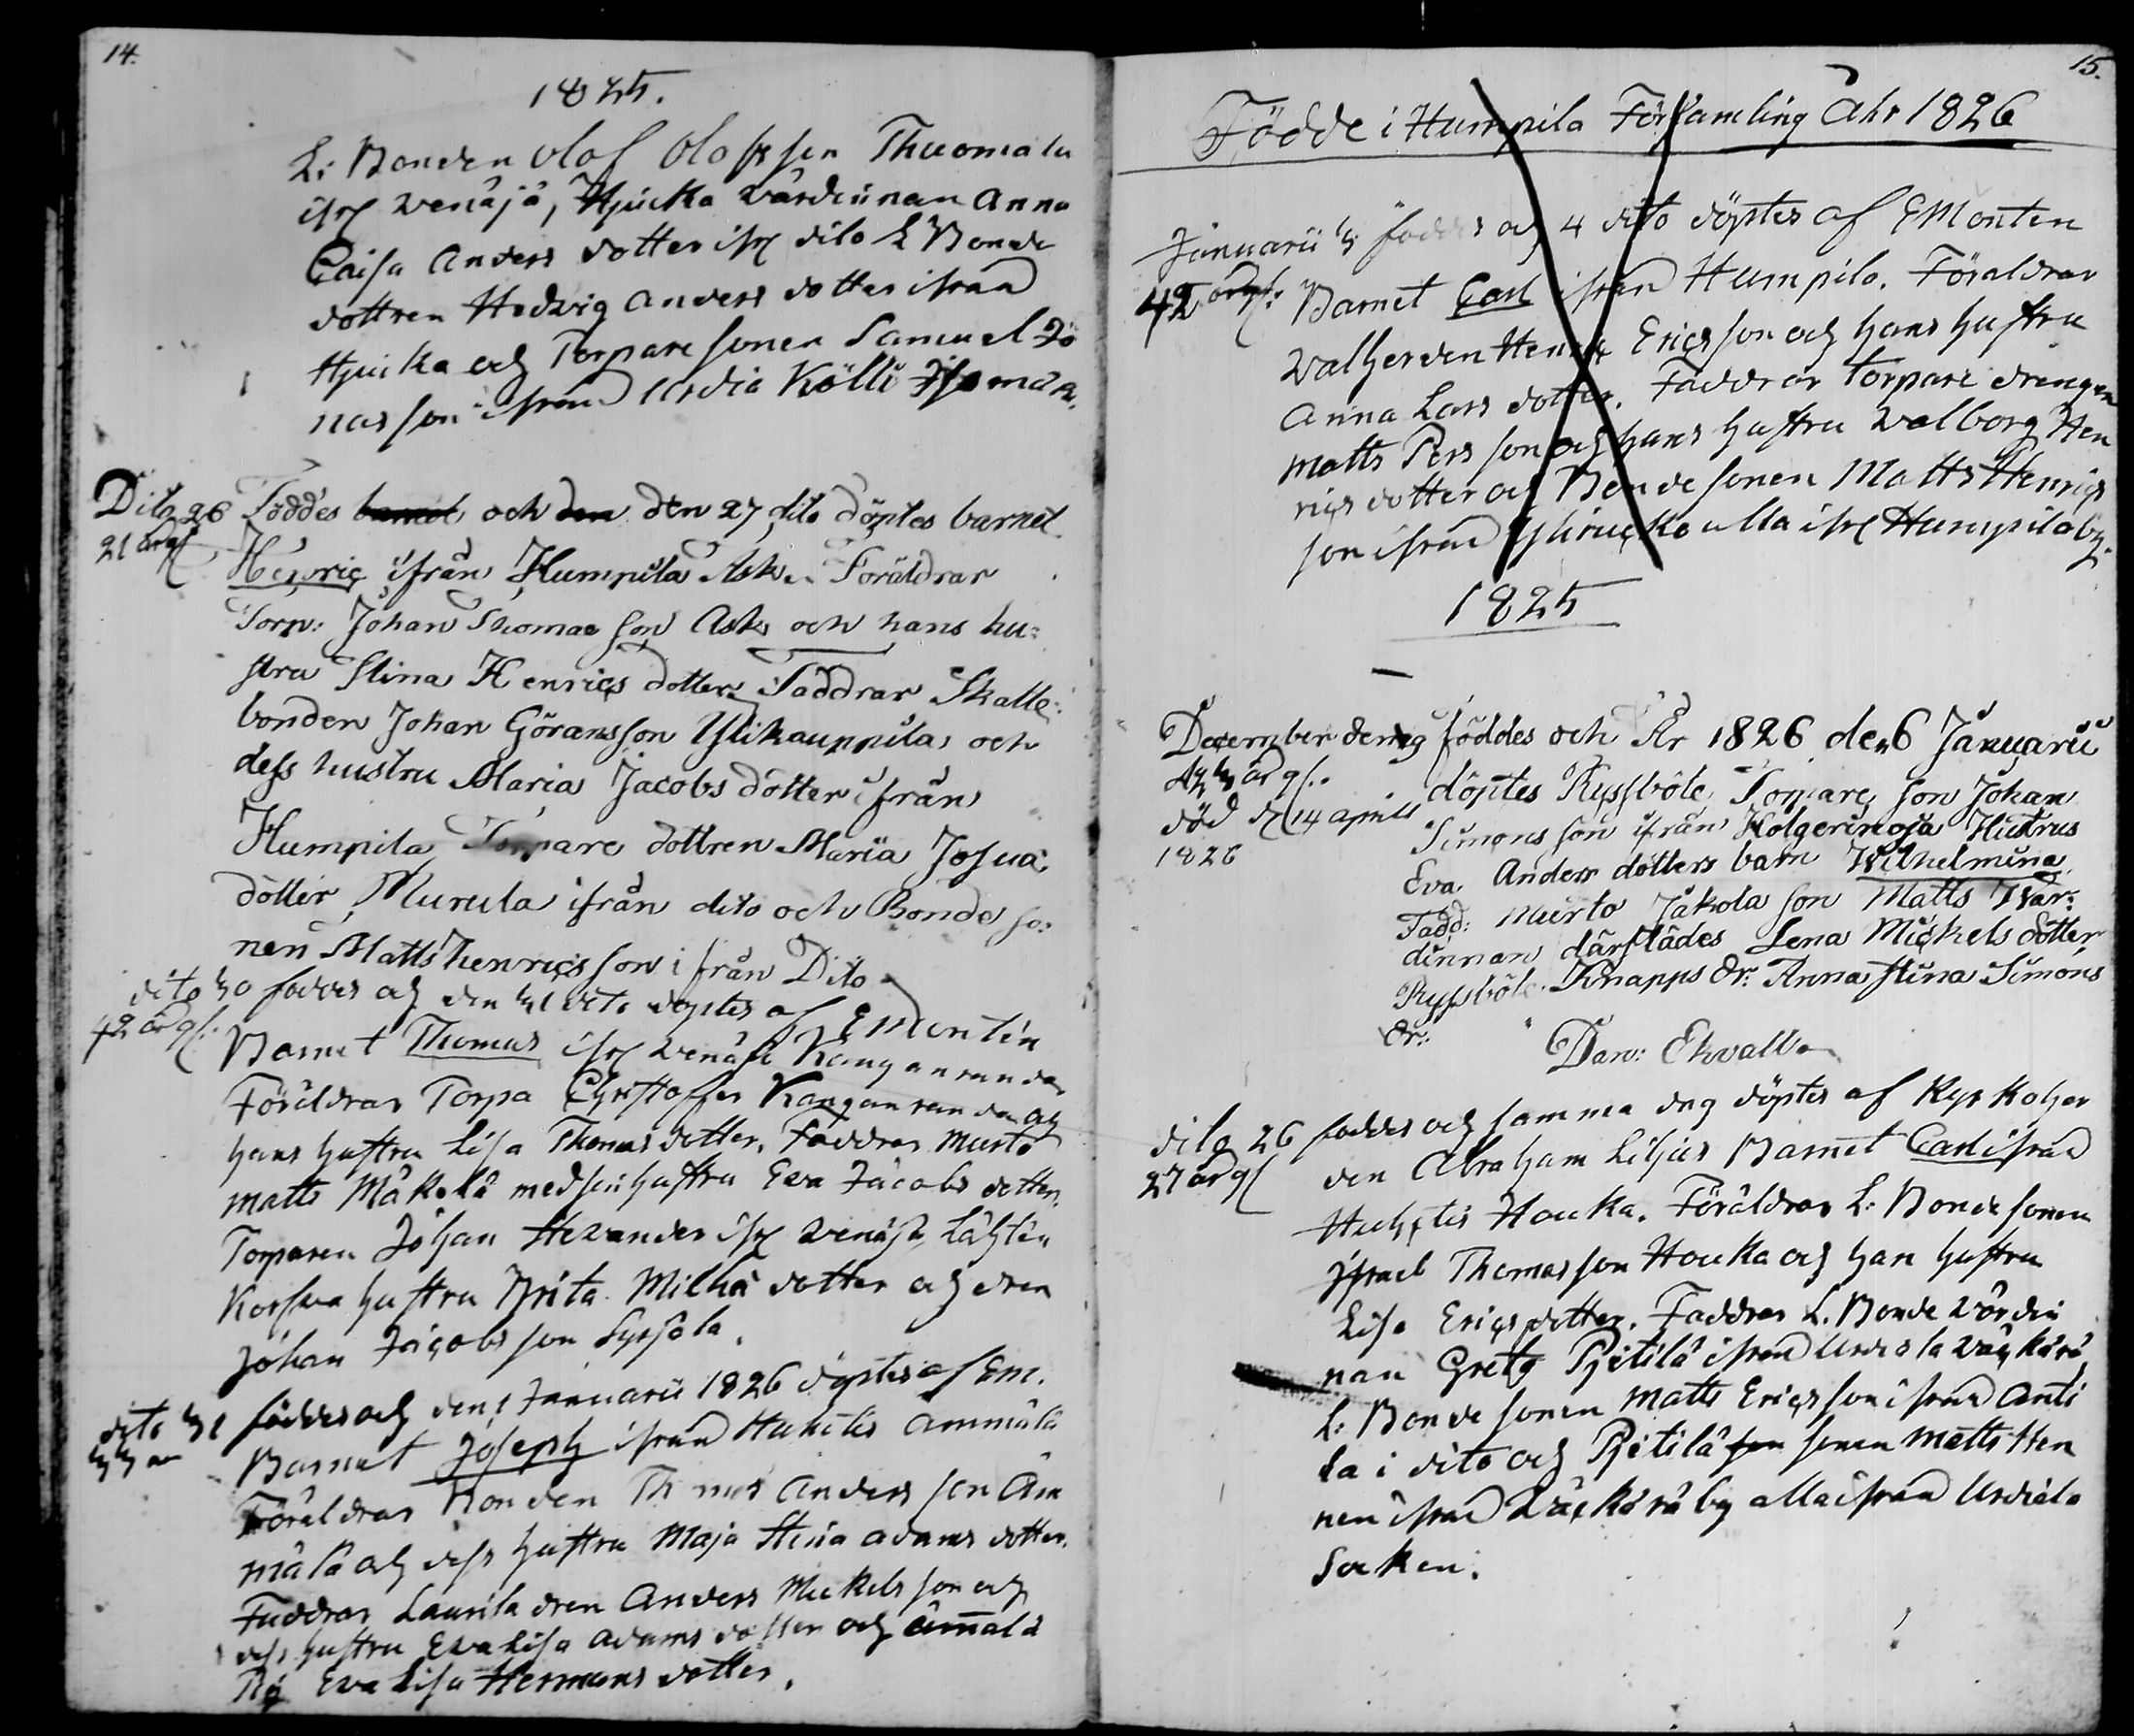 14.
1825.
L: Bonden Olof Olofsson Thuomala
ifrn Venäjä, Hjuika Värdinnan Anna
Caisa Anders dotter ifrn dito L Bonde
dottren Hedvig Anders dotter ifrån
Hjuika och Torpare sonen Samuel Jo
nas son ifrån Urdia Kölli
Dito 26 Föddes barnet och den den 27 dito döptes barnet
21 år gl Henric ifrån Humpila Ask. Föräldrar
Torp: Johan Thomas son Ask och hans hu:
stru Stina Henrics dotter, Faddrar Skatte:
bonden Johan Göransson Ylikauppila och
dess hustru Maria Jacobs dotter ifrån
Humpila Torpare dottren Maria Josua
dotter, Murula ifrån dito och Bonde so:
nen Matts Henricsson ifrån Dito
dito 30 foddes och den 31 dito doptes af E Montin
42 år gl. Barnet Thomas ifrn Venäjä Kanganranda
Föräldrar Torpa Christoffer Kanganranda och
hans hustru Lisa Thomas dotter. Faddrar Murto
matts Mäkelä med sin hustru Eva Jacobs dotter.
Torparen Johan Stevander ifrn Venäjä, Lähten
Korfva hustru Brita dotter och dren
Johan Jacobs son Syrjälä.
dito 31 föddes och den 1 Januarii 1826 döptes af EM.
33 år Barnet Joseph ifrån Huhtis Ammälä
Föräldrar Bonden Thomas Anders son Äm
mälä och dess hustru Maja Stina Adams dotter.
Faddrar Laurila dren Anders Mickels son och
dess hustru Eva Lisa Adams dotter och Ämälä
Pig Eva Lisa Hermans dotter.
15.
Födde i Humpila Församling Åhr 1826
Januarii 3 foddes och 4 dito döptes af EMonten
42 år gl. Barnet Carl ifrån Humpila. Föraldrar
Henric Ericsson och hans hustru
Anna Lars dotter. Faddrar Torpare drengen
Matts Pers son och hans hustru Valborg Hen
rics dotter och Bonde sonen Matts Henrics
son ifrån alla ifrn Humpila by.
1825
December den 29 föddes och År 1826 den 6 Januarii
år gl. döptes Ryssböle Torpare son Johan
död d 14 april Simons son ifrån Kolgerinoja Hustrus
1826 Eva Anders dotters barn Wilhelmina
Fadd: Murto Jakola son Matts Wär:
dinnan därstädes Lena Mickels dotter
Ryssböle. Knapps dr. Anna Stina Simons
dr:
Dan: Ekvall
dito 26 foddes och samma dag döptes af Kyrkoher
27 år gl den Abraham Liljus Barnet Carl ifrån
Huhtis Houka. Föräldrar L: Bonde sonen
Israel Thomas son Houka och han hustru
Lisa Ericsdotter. Faddrar L. Bonde Värdin
nan Greta Pjetilä ifrån Urdiala
L: Bonde sonen Matts Ericsson ifrån Anti
la i dito och Pjetilä son sonen Matts Hen
nen ifrån by alla ifrån Urdiala
Socken.